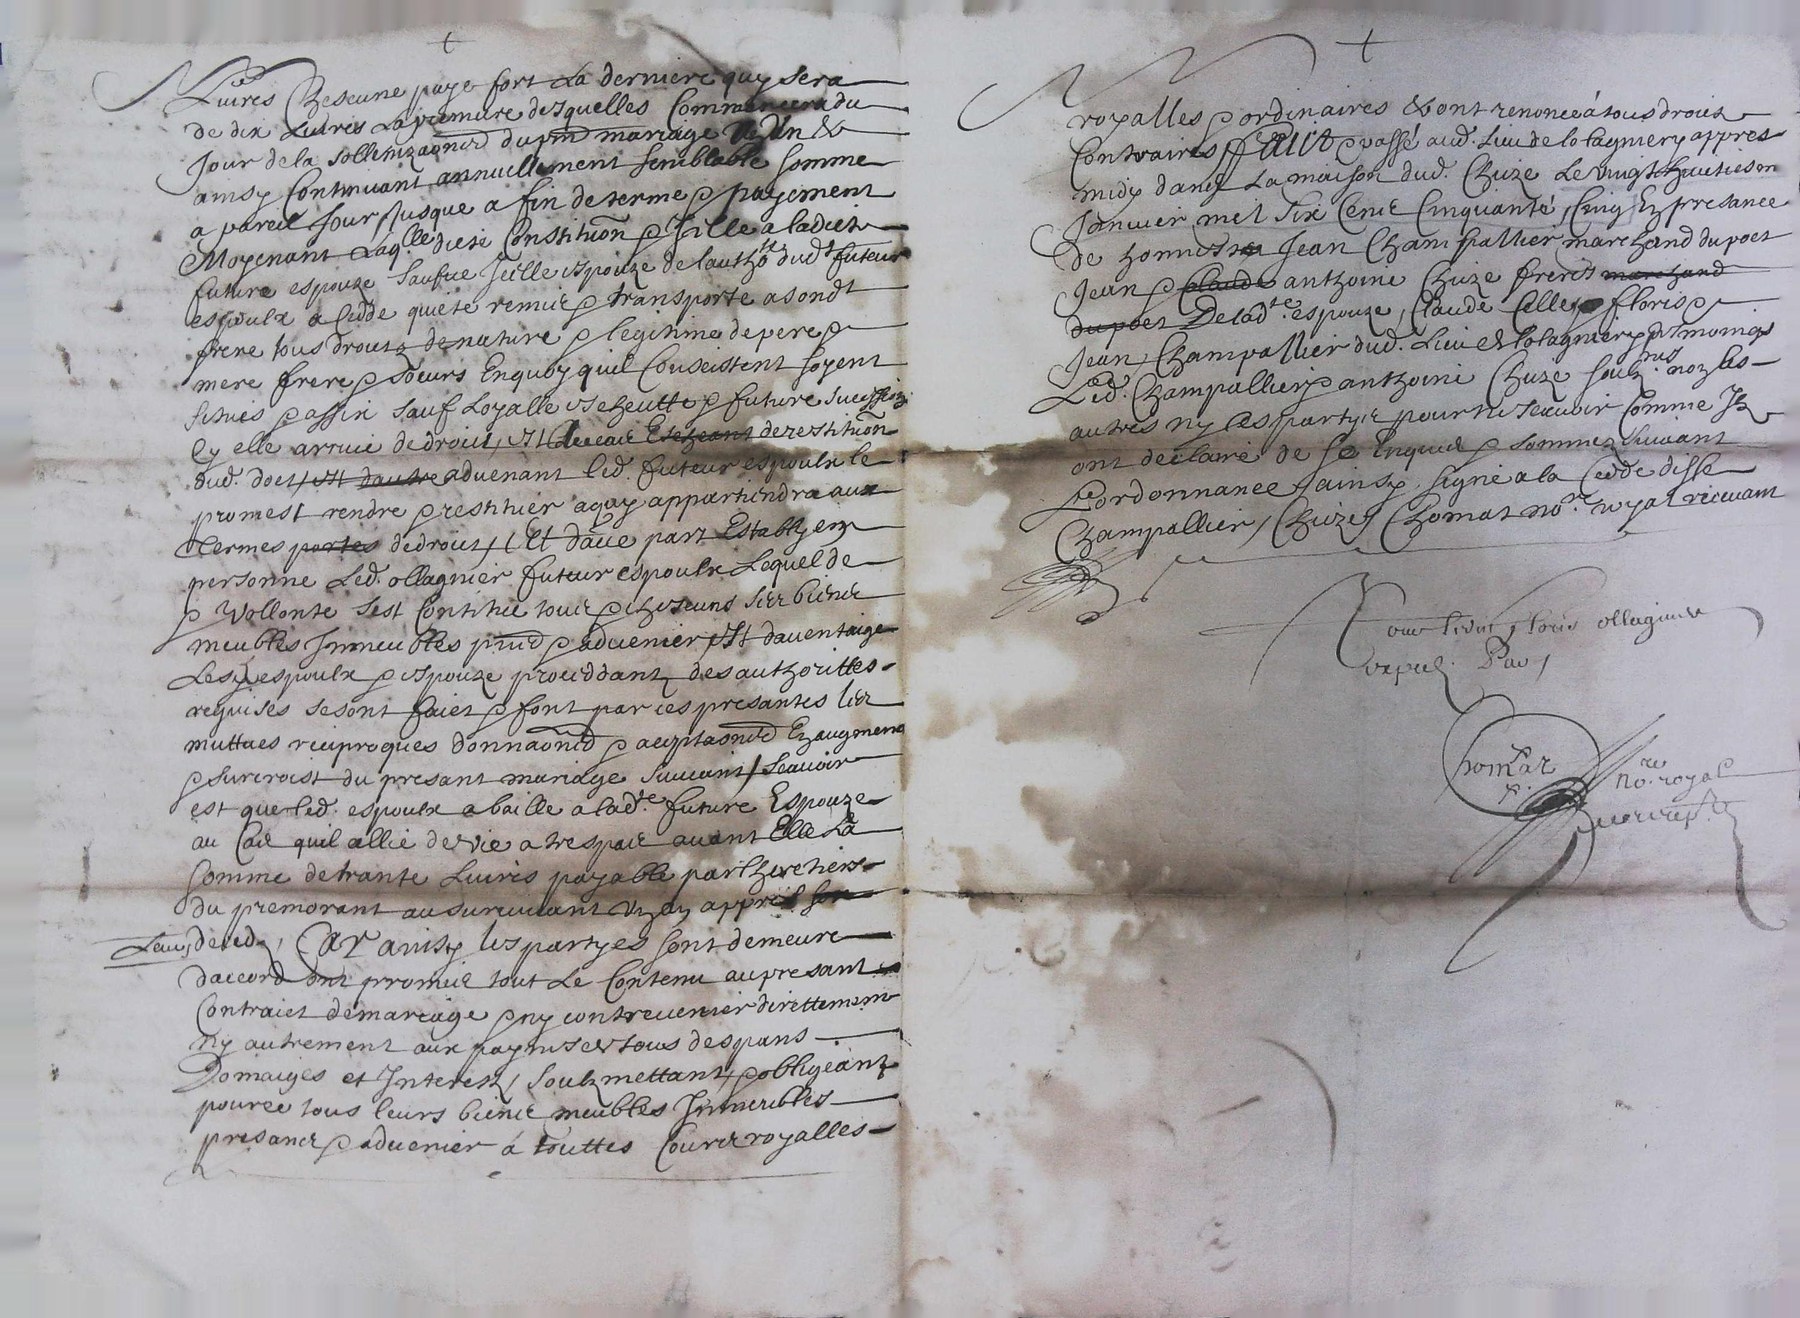 Livres Chescune paye fort La derniere quy sera
de dix Livres La premiere desquelles Commencera du
Jour de la sollemzaõn du pnt mariage
ainsy Continuant annuellement semblable somme
a pareil Jour Jusque a fin de terme e payement
Moyenant Laqlle diete Constitution e fille a ladicte
future espouze Saufue Jcille espouze de lautho dud futeur
espoulx a Cedde quicte remue e transporte a sondt
frere tous droits de nature e legitime de pere e
mere frere e soeurs Enquoy quil Consistent soyent
situés e assix sauf Loyalle escheutte e future sucession
sy elle arrive de droict, de restituõn
dud. doct, aduenant led. futeur espoulx le
promest rendre e restituer a quy appartiendra aux
termes portes de droict, Et dauc part Estably en
personne Led. ollagnier futeur espoulx Lequel de
e vollonte sest Constitue tous e chescuns ses biens
meubles Jmmeubles pnts e aduenier, Et dauentaige
Lesd espoulx e espouze proceddant des authorittes
requises se sont faict e font par ces presantes les
muttues reciproques donnaõns e aceptaõns En augment
e surcroist du presant mariage suivant, scavoir
est que led. espoulx a baille a ladte future Espouze
au Cas quil allie de vie a trespas auant Elle La
somme de trante Livres payable par lheretiers
du premorant au survivant un an appres son
deced, Car ainsy les partyes sont demeure
daccord ont promis tout Le Contenu au presant
Contraict de mariage e ny contrevenier direttement
ny autrement aux paynes de tous despans
Domaiges et Interestz, soubzmettant, e obligeant
pource tous leurs biens meubles Jmmeubles
presans e aduenier á touttes Cours royalles
royalles e ordinaires & ont renoncé á tous drois
Contraires, faict e passé aud. Lieu de lolagniery appres
midy dans La maison dud. Chuze Le vingt huictiesm
Janvier mil six Cens Cinquante, Cinq En presance
de honneste Jean Champallier marchand du poet
Jean e Claude anthoine Chuze freres marchand
du poet De ladte. espouze, Claude Celle e floris e
Jean Champallier dud. Lieu de lolagniery tesmoings
Led. Champallier e anthoine Chuze soubznés nonz les
autres ny les partyes pour ne scavoir Comme Jlz
ont declaire de ce Enquis e sommez suivant
Lordonnance, ainsy signe a la Cedde disse
Champallier, Chuze, Chomat nore. royal recevant
Pour floris ollagnier
Chomat
nore. royal